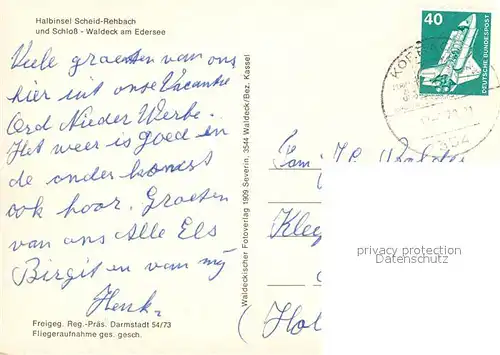 Halbinsel Scheid-Rehbach
und Schloß - Waldeck am Edersee
Viele groeten van ons
hier uit onze Vacantie
Ord Nieder Werbe.
Het weer is goed en
de onderkomst
ook hoor. Groeten
van ons Alle Els
Birgit en van mij
Henk.
Freigeg. Reg.-Präs. Darmstadt 54/73
Fliegeraufnahme ges. gesch.
Waldeckischer Fotoverlag 1909 Severin, 3544 Waldeck/Bez. Kassel
40
DEUTSCHE BUNDESPOST
354
Fam
Kleg
(Hol
privacy protection
Datenschutz